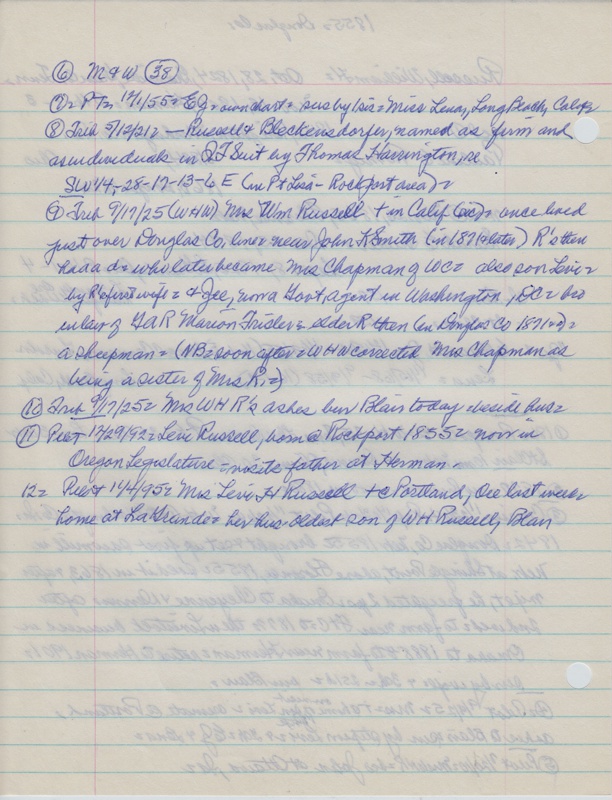 ⑥ M & W ㊳
⑦= PTn 12/1/55= EG= own chart= sus by Isis= Miss Lena, Long Beach, Calif=
⑧ Trib 5/12/21= — Russell & Bleckensdorfer, named as firm and
as individuals in QT Suit by Thomas Harrington, re
SW 14, -28-17-13-6 E (in Pt Lisa - Rockport area)=
⑨ Trib 9/17/25 (WHW) Mrs Wm Russell + in Calif (sic)= once lived
just over Douglas Co, line= near John K Smith (in 1871 & later) R's then
had a d= who later became Mrs Chapman of WC= also son Levi=
by R's first wife = & Jee, now a Govt, agent in Washington, DC= bro
in law of GAR Marion = elder R then (in Douglas Co 1871=)=
a sheepman= (NB= soon after= WHW corrected Mrs Chapman as
being a sister of Mrs R.=)
⑩ Trib 9/17/25= Mrs WH R's ashes bur Blair today = beside hus=
⑪ Pilot 12/29/92= Levi Russell, born @ Rockport 1855= now in
Oregon Legislature = visits father at Herman -
12= Pilot 1/4/95= Mrs Levi H Russell + @ Portland, Ore last week
home at LaGrande= her hus oldest son of WH Russell, Blair